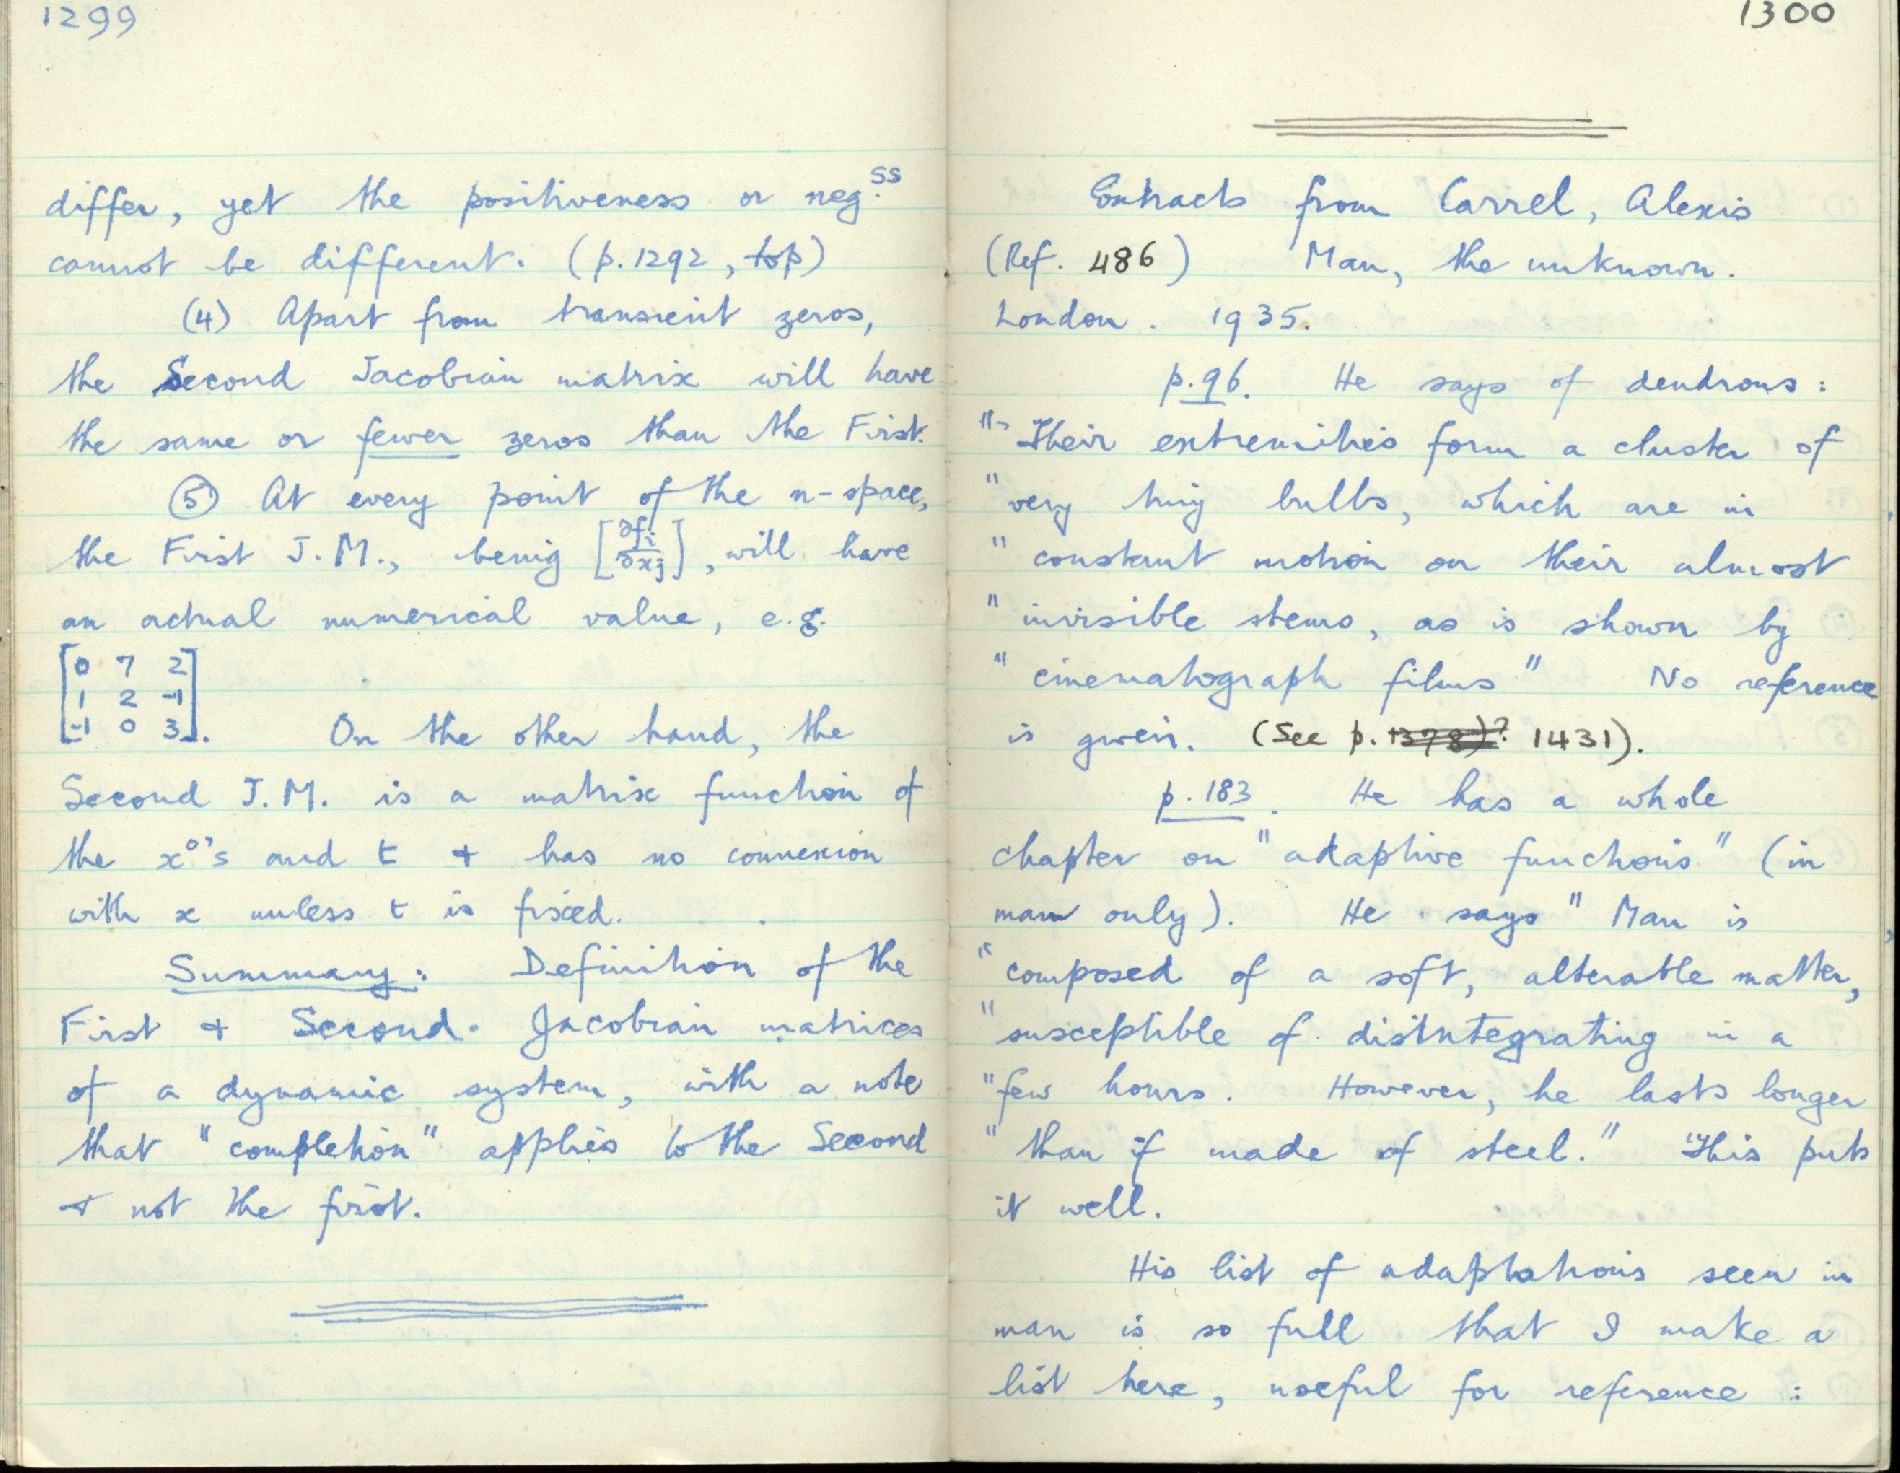 1299
differ, yet the positiveness or neg.ss
cannot be different. (p.1292, top)
(4) Apart from transient zeros,
the Second Jacobian matrix will have
the same or fewer zeros than the First.
(5) At every point of the n-space,
the First J.M., being [∂fi/∂xj], will have
an actual numerical value, e.g.
[0 7 2
1 2 -1
-1 0 3]. On the other hand, the
Second J.M. is a matrix function of
the x°'s and t + has no connexion
with x unless t is fixed.
Summary: Definition of the
First + Second Jacobian matrices
of a dynamic system, with a note
that "completion" applies to the Second
+ not the first.
1300
Extracts from Carrel, Alexis
(Ref. 486) Man, the unknown.
London. 1935.
p.96. He says of dendrons:
"Their extremities form a cluster of
"very tiny bulbs, which are in
"constant motion on their almost
"invisible stems, as is shown by
"cinematograph films" No reference
is given. (See p. 1378)? 1431).
p.183. He has a whole
chapter on "adaptive functions" (in
man only). He says "Man is
"composed of a soft, alterable matter,
"susceptible of disintegrating in a
"few hours. However, he lasts longer
"than if made of steel." This puts
it well.
His list of adaptations seen in
man is so full that I make a
list here, useful for reference: